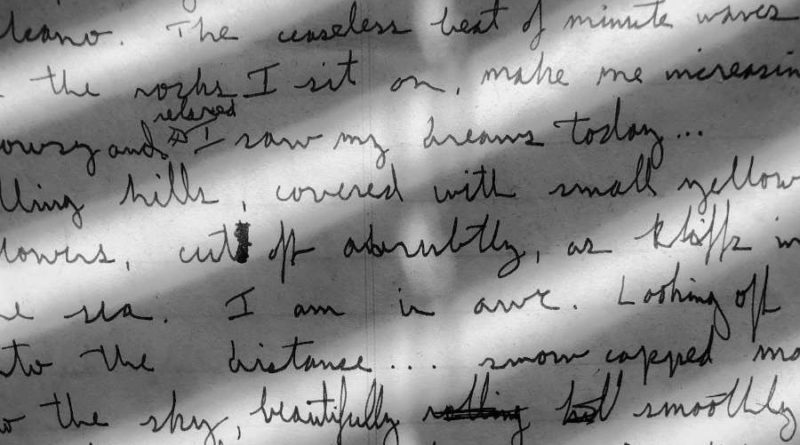 lcano. The ceaseless beat of minute waves
the rocks I sit on, make me increasin
relaxed
owsy and I saw my dreams today...
lling hills, covered with small yellow
lowers, cut off abrubtly, as kliffs in
e sea. I am in awe. Looking off
to the distance.... snow capped mo
o the sky, beautifully rolling but smoothly